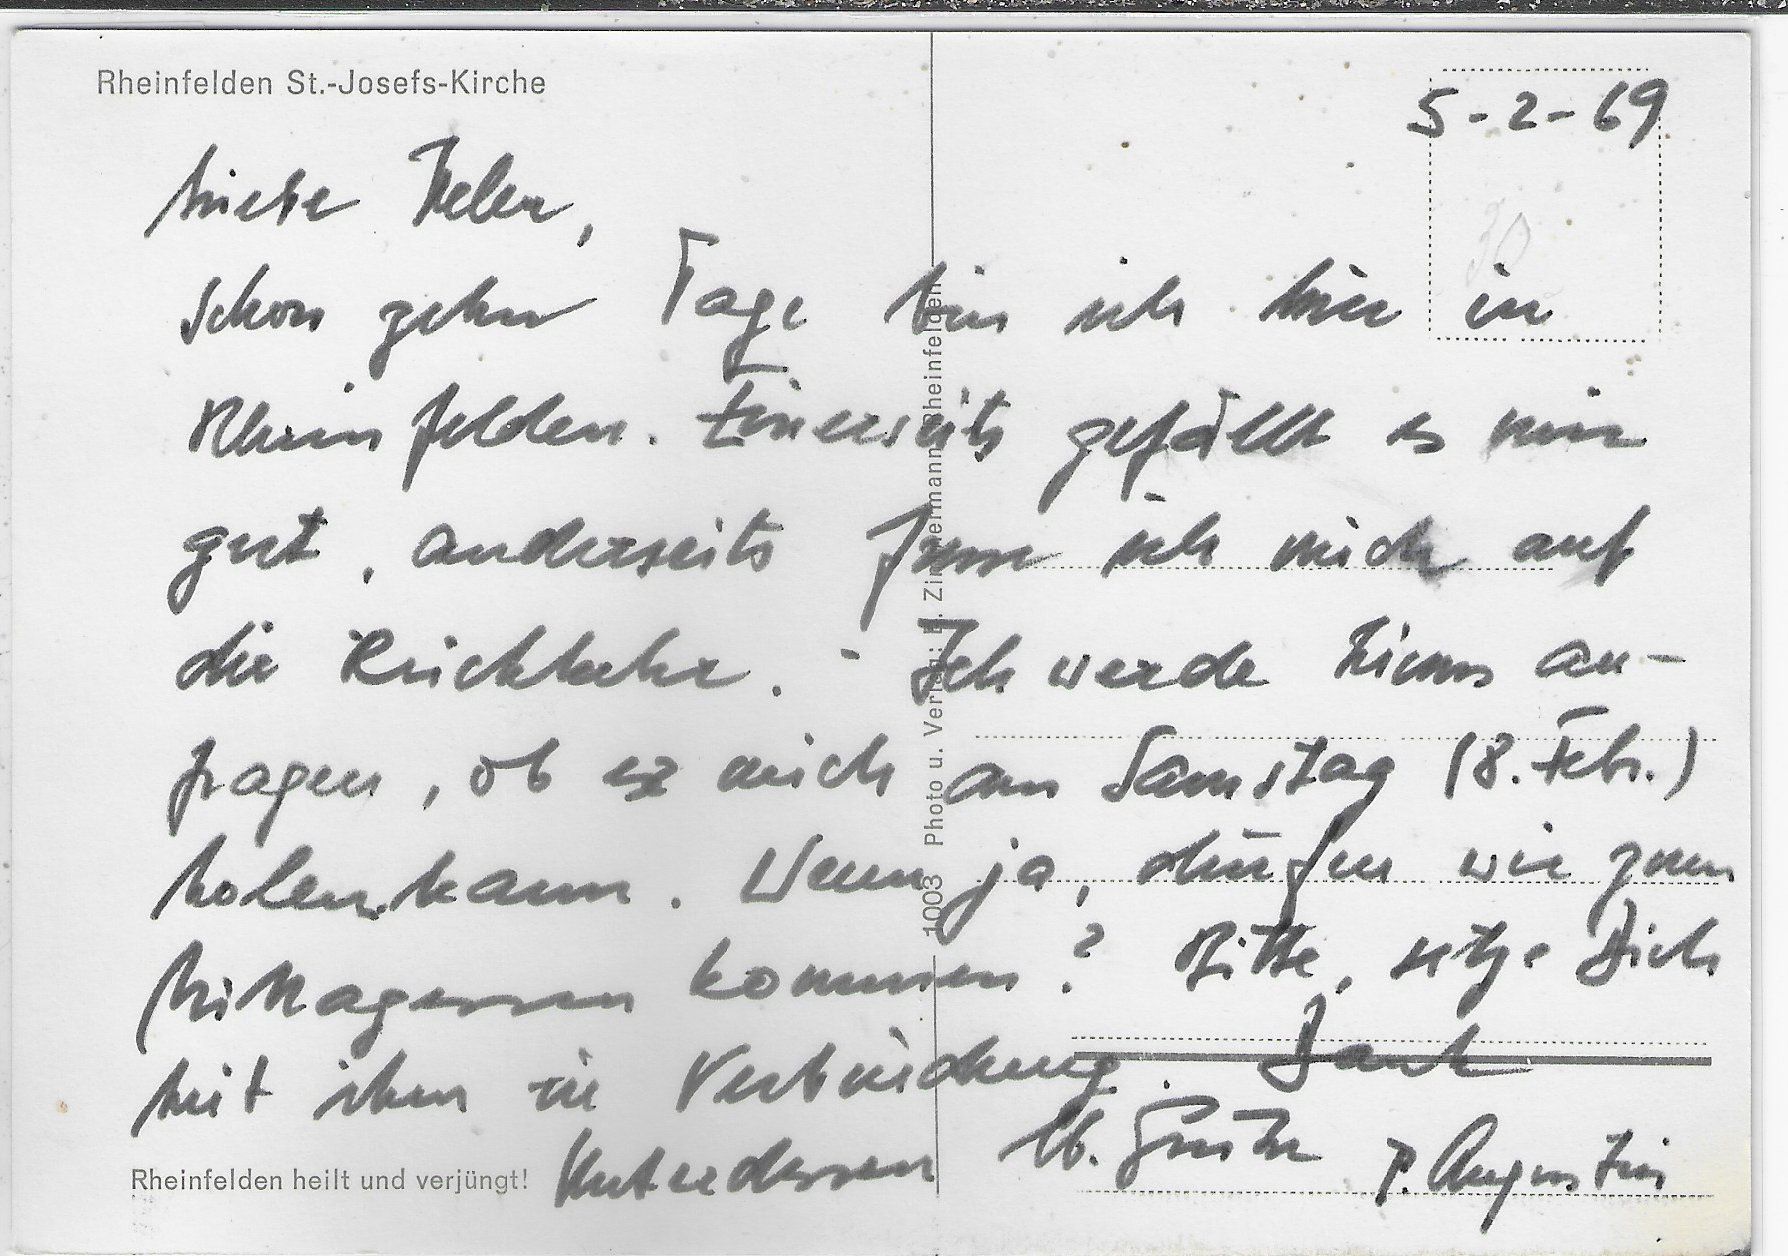 Rheinfelden St.-Josefs-Kirche
5-2-69
30
Liebe Helen,
Schon zehn Tage bin ich hier in
Rheinfelden. Einerseits gefällt es mir
gut, anderseits freue ich mich auf
die Rückkehr. - Ich werde an-
fragen, ob er mich am Samstag (8. Febr.)
holen kann. Wenn ja, dürfen wir zum
Mittagessen kommen? Bitte, setze Dich
mit ihm in Verbindung. Dank
Unterdessen lb. Grüße P. Augustin
Rheinfelden heilt und verjüngt!
1003 Photo u. Verlag: E. Zimmermann Rheinfelden